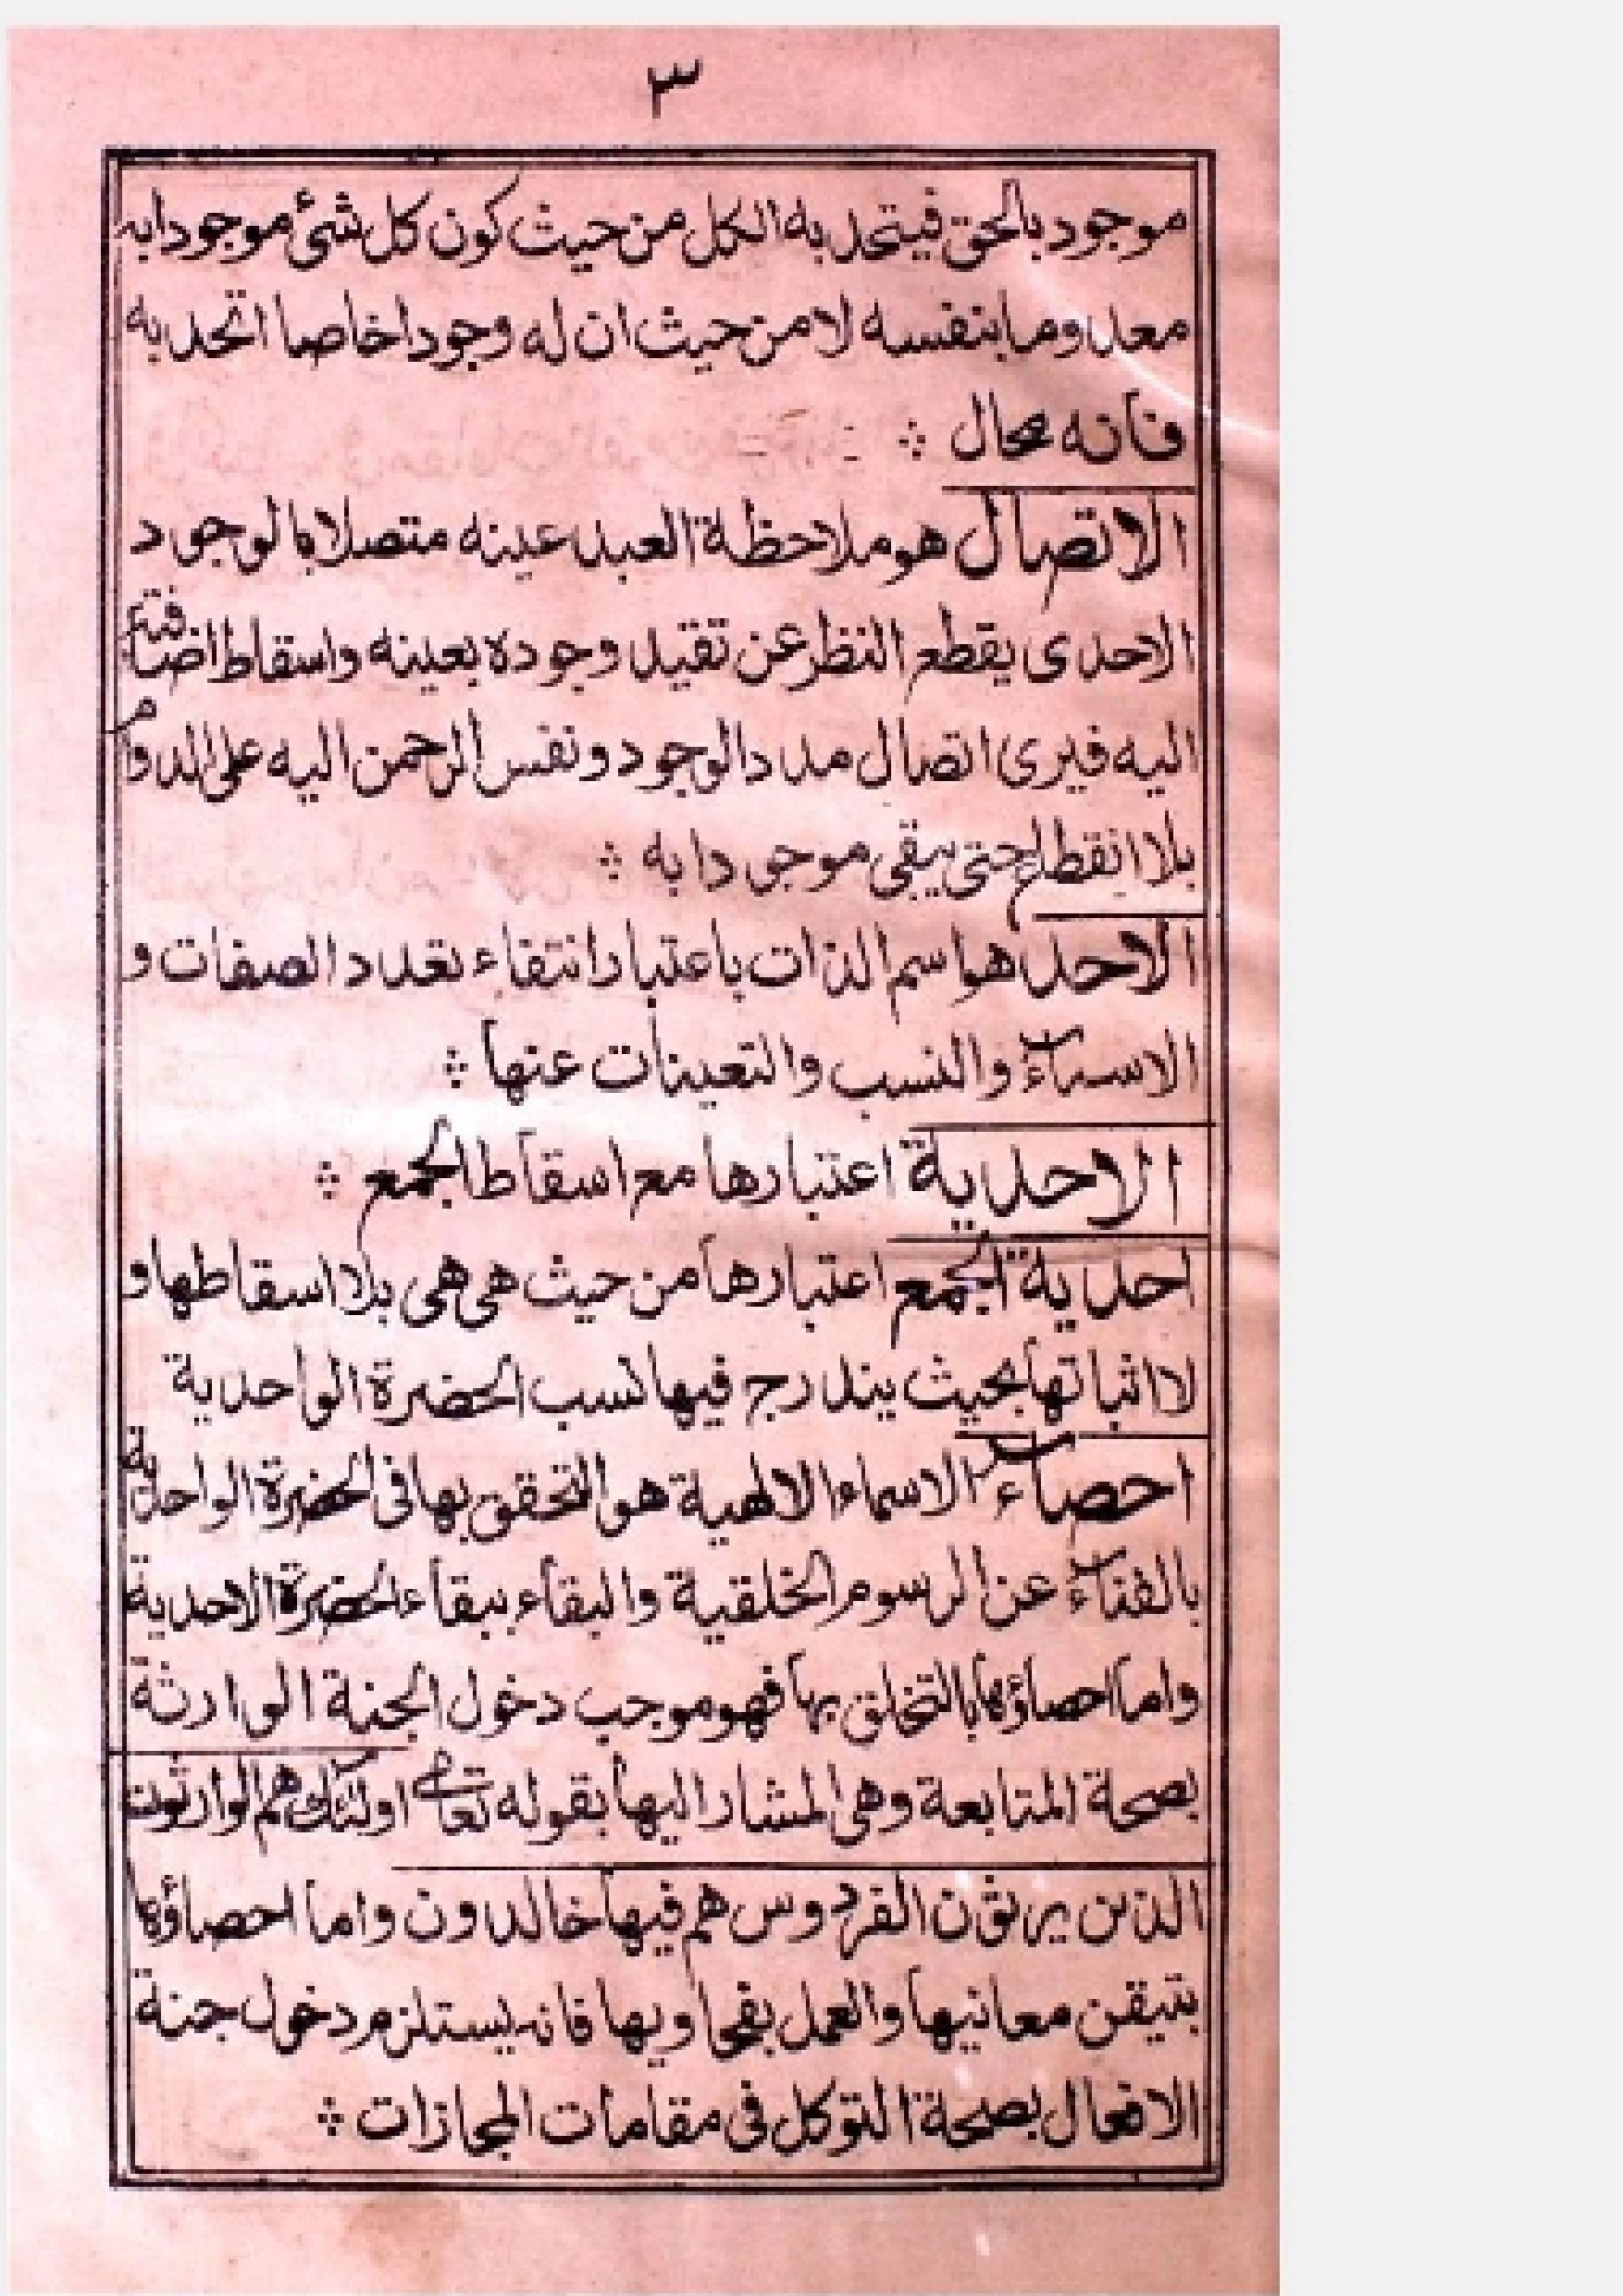 ٣
موجود بالحق فيتحد به الكل من حيث كون كل شئ موجودا به
معدوما بنفسه لا من حيث ان له وجودا خاصا اتحد به
فانه محال ؞
الاتصال هو ملاحظة العبد عينه متصلا بالوجود
الاحدى يقطع النظر عن تقيد وجوده بعينه واسقاط اضافته
اليه فيرى اتصال مدد الوجود ونفس الرحمن اليه على الدوام
بلا انقطاع حتى يبقى موجودا به ؞
الاحد هو اسم الذات باعتبار انتفاء تعدد الصفات و
الاسماء والنسب والتعينات عنها ؞
الاحدية اعتبارها مع اسقاط الجمع ؞
احدية الجمع اعتبارها من حيث هى هى بلا اسقاطها و
لا اثباتها بحيث يندرج فيها نسب الحضرة الواحدية
احصاء الاسماء الالهية هو التحقق بها فى الحضرة الواحدية
بالفناء عن الرسوم الخلقية والبقاء ببقاء الحضرة الاحدية
واما احصاؤها بالتخلق بها فهو موجب دخول الجنة الوارثة
بصحة المتابعة وهى المشار اليها بقوله تعالى اولئك هم الوارثون
الذين يرثون الفردوس هم فيها خالدون واما احصاؤها
بتيقن معانيها والعمل بفحاويها فانه يستلزم دخول جنة
الافعال بصحة التوكل فى مقامات المجازات ؞